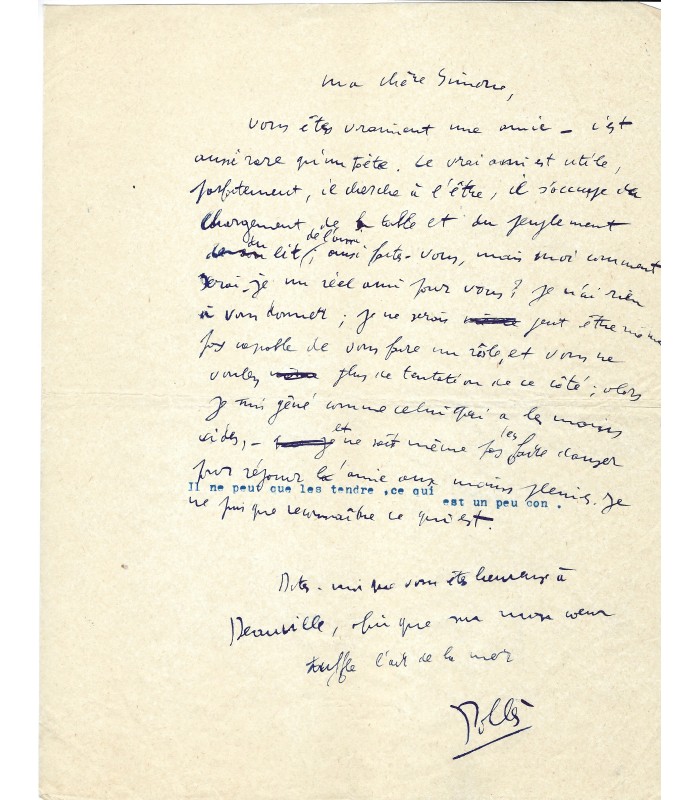 ma chère Simone,
Vous êtes vraiment une amie - c'est
aussi rare qu'un poète. Le vrai ami est utile,
parfaitement, il cherche à l'être, il s'occupe du
chargement de la table et du
du lit de l'ami, ainsi faites-vous, mais moi comment
serai-je un réel ami pour vous? Je n'ai rien
à vous donner; je ne serais peut être même
pas capable de vous faire un rôle, et vous ne
voulez plus de tentation de ce côté; alors
je suis gêné comme celui qui a les mains
vides, - et ne sait même pas les faire danser
pour réjouir l'amie aux mains pleines. Je
Il ne peut que les tendre ,ce qui est un peu con .
ne puis que reconnaître ce qui est.
Dites-moi que vous êtes heureuse à
Deauville, afin que ma coeur
souffle l'air de la mer